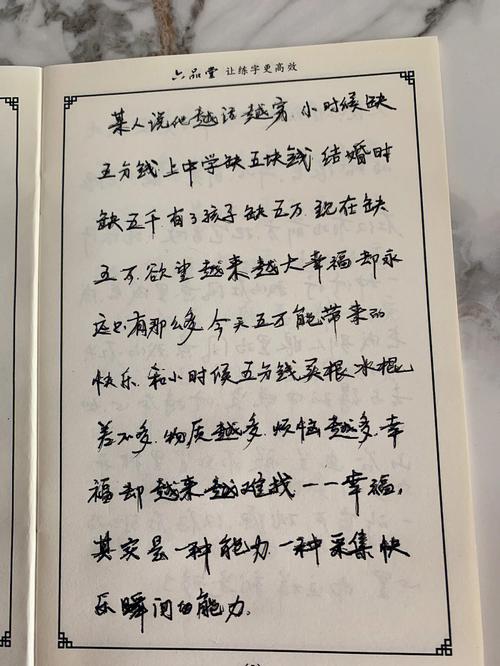 六品堂 让练字更高效
某人说他越活越穷,小时候缺
五分钱上中学缺五块钱,结婚时
缺五千,有了孩子缺五万.现在缺
五万.欲望越来越大幸福却永
远只有那么多,今天五万能带来的
快乐.和小时候五分钱买根冰棍
差不多,物质越多.烦恼越多.幸
福却越来越难找——幸福,
其实是一种能力.一种采集快
乐瞬间的能力.